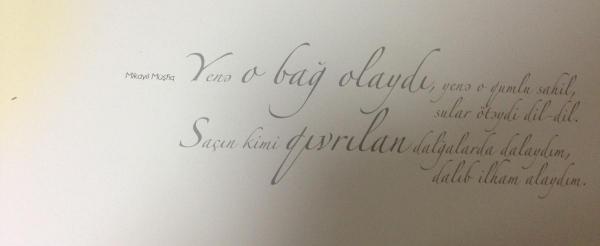 Mikayıl Müşfiq
Yenə o bağ olaydı, yenə o qumlu sahil,
sular ötəydi dil-dil.
Saçın kimi qıvrılan dalğalarda dalaydım,
dalıb ilham alaydım.